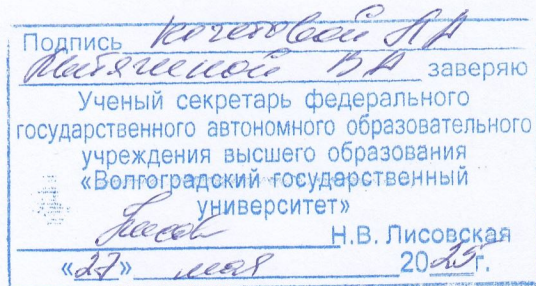 Подпись Кочетовой ЛА
Митягиной ВА заверяю
Ученый секретарь федерального
государственного автономного образовательного
учреждения высшего образования
«Волгоградский государственный
университет»
Н.В. Лисовская
«27» мая 2025г.